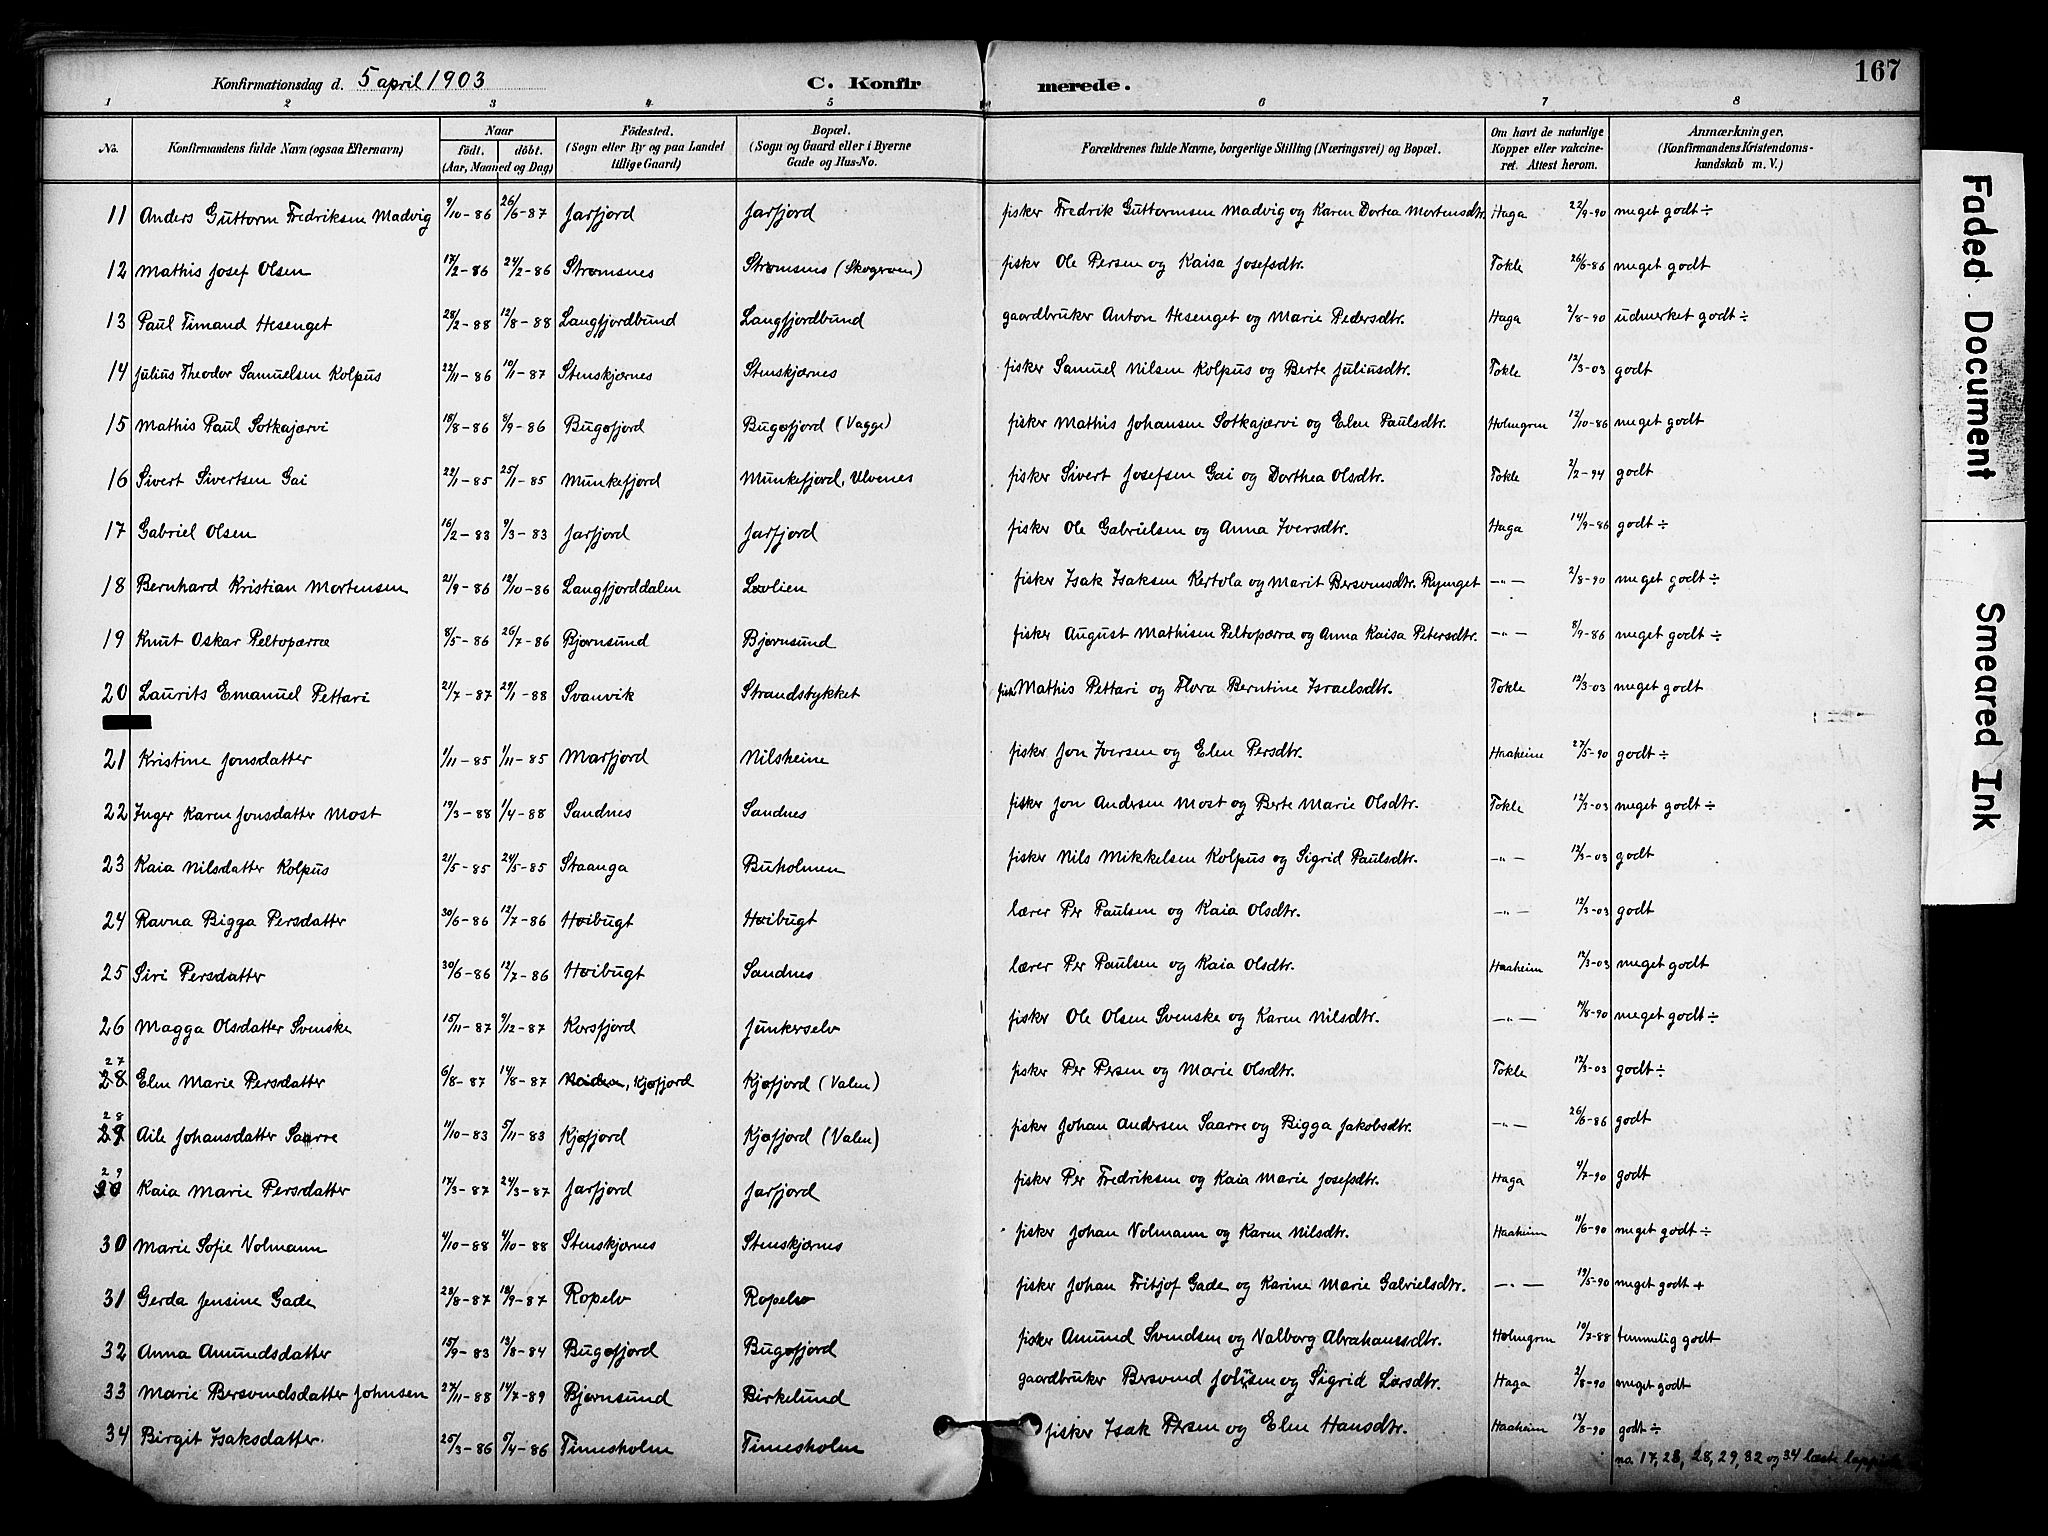 167
Konfirmationsdag d. 5 april 1903 C. Konfirmerede.
1 2 3 4 5 6 7 8
No. Konfirmandens fulde Navn (ogsaa Efternavn) Naar födt. döbt. (Aar, Maaned og Dag) Födested. (Sogn eller By og paa Landet tillige Gaard) Bopæl. (Sogn og Gaard eller i Byerne Gade og Hus-No. Forældrenes fulde Navne, borgerlige Stilling (Næringsvei) og Bopæl. Om havt de naturlige Kopper eller vakcineret. Attest herom. Anmærkninger. (Konfirmandens Kristendomskundskab m. V.)
11 Anders Guttorm Fredriksen Madvig 9/10-86 26/6-87 Jarfjord Jarfjord fisker Fredrik Guttormsen Madvig og Karen Dortea Mortensdtr. Haga 22/9-90 meget godt ÷
12 Mathis Josef Olsen 17/2-86 24/2-86 Strømsnes Strømsnes (Skogroen) fisker Ole Persen og Kaisa Josefsdtr. Tokle 26/6-86 meget godt
13 Paul Timand Hesenget 28/2-88 12/8-88 Langfjordbund Langfjordbund gaardbruker Anton Hesenget og Marie Pedersdtr. Haga 2/8-90 udmerket godt ÷
14 Julius Theodor Samuelsen Kolpus 22/11-86 10/1-87 Stenskjærnes Stenskjærnes fisker Samuel Nilsen Kolpus og Berte Juliusdtr. Tokle 12/3-03 godt
15 Mathis Paul Sotkajærvi 18/8-86 8/9-86 Bugøfjord Bugøfjord (Vagge) fisker Mathis Johansen Sotkajærvi og Elen Paulsdtr. Holmgren 12/10-86 meget godt
16 Sivert Sivertsen Gai 22/1-85 25/1-85 Munkefjord Munkefjord, Ulvenes fisker Sivert Josefsen Gai og Dorthea Olsdtr. Tokle 2/2-94 godt
17 Gabriel Olsen 16/2-83 9/3-83 Jarfjord Jarfjord fisker Ole Gabrielsen og Anna Iversdtr. Haga 14/9-86 godt ÷
18 Bernhard Kristian Mortensen 21/9-86 12/10-86 Langfjorddalen Løvlien fisker Isak Isaksen Kertola og Marit Bersvensdtr. Rynget —"— 2/8-90 meget godt ÷
19 Knut Oskar Peltopærræ 8/5-86 26/7-86 Bjørnsund Bjørnsund fisker August Mathisen Peltopærræ og Anna Kaisa Petersdtr. —"— 8/9-86 meget godt ÷
20 Laurits Emanuel Pettari 21/7-87 29/1-88 Svanvik Strandstykket fisk. Mathis Pettari og Flora Berntine Israelsdtr. Tokle 12/3-03 meget godt
21 Kristine Jonsdatter 1/11-85 1/11-85 Marfjord Nilsheine fisker Jon Iversen og Elen Persdtr. Haaheim 27/5-90 godt ÷
22 Inger Karen Jonsdatter Most 19/3-88 1/4-88 Sandnes Sandnes fisker Jon Andersen Most og Berte Marie Olsdtr. Tokle 12/3-03 meget godt ÷
23 Kaia Nilsdatter Kolpus 21/5-85 24/5-85 Staanga Buholmen fisker Nils Mikkelsen Kolpus og Sigrid Paulsdtr. —"— 12/3-03 godt
24 Ravna Bigga Persdatter 30/6-86 12/7-86 Høibugt Høibugt lærer Per Paulsen og Kaia Olsdtr. —"— 12/3-03 godt
25 Siri Persdatter 30/6-86 12/7-86 Høibugt Sandnes lærer Per Paulsen og Kaia Olsdtr. Haaheim 12/3-03 meget godt
26 Magga Olsdatter Svenske 15/11-87 9/12-87 Korsfjord Junkerselv fisker Ole Olsen Svenske og Karen Nilsdtr. —"— /8-90 meget godt ÷
27 28 Elen Marie Persdatter 6/8-87 14/8-87 Neiden, Kjøfjord Kjøfjord (Valen) fisker Per Persen og Marie Olsdtr. Tokle 12/3-03 godt ÷
28 29 Aile Johansdatter Saarre 11/10-83 5/11-83 Kjøfjord Kjøfjord (Valen) fisker Johan Andersen Saarre og Bigga Jakobsdtr. —"— 26/6-86 godt
29 30 Kaia Marie Persdatter 17/3-87 24/3-87 Jarfjord Jarfjord fisker Per Fredriksen og Kaia Marie Josefsdtr. Haga 4/7-90 godt
30 Marie Sofie Volmann 4/10-88 4/10-88 Stenskjærnes Stenskjærnes fisker Johan Volmann og Karen Nilsdtr. Haaheim 11/6-90 meget godt ÷
31 Gerda Jensine Gade 23/8-87 18/9-87 Ropelv Ropelv fisker Johan Fritjof Gade og Karine Marie Gabrielsdtr. —"— 19/5-90 meget godt +
32 Anna Amundsdatter 15/9-83 13/8-84 Bugøfjord Bugøfjord fisker Amund Svendsen og Valborg Abrahamsdtr. Holmgren 10/7-88 temmelig godt
33 Marie Bersvendsdatter Johnsen 27/11-88 14/7-89 Bjørnsund Birkelund gaardbruker Bersvend Johnsen og Sigrid Larsdtr. Haga 2/8-90 meget godt
34 Birgit Isaksdatter 25/3-86 5/4-86 Timesholm Timesholm fisker Isak Persen og Elen Hansdtr. Haaheim 13/8-90 godt ÷
no. 17, 23, 28, 29, 32 og 34 læste lappisk
Faded Document
Smeared Ink